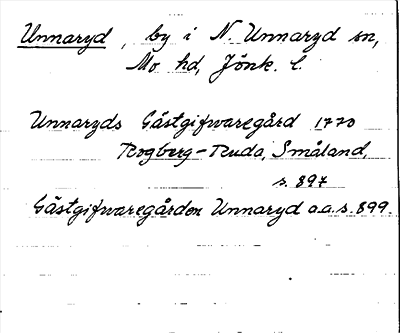 Unnaryd, by i N. Unnaryd sn,
Mo hd, Jönk. l.
Unnaryds Gästgifvaregård 1770
Rogberg-Ruda, Småland,
s. 897
Gästgifvaregården Unnaryd a.a. s. 899.